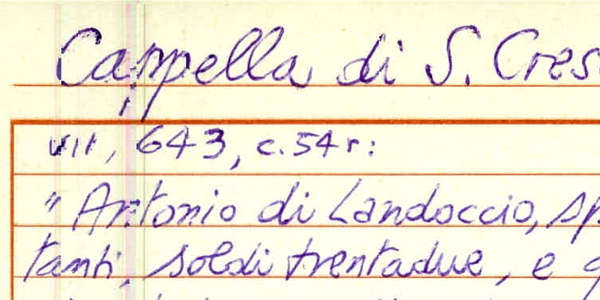 Cappella di S. Cres
VII, 643, c.54r:
"Antonio di Landoccio, sp
tanti, soldi trentadue, e q